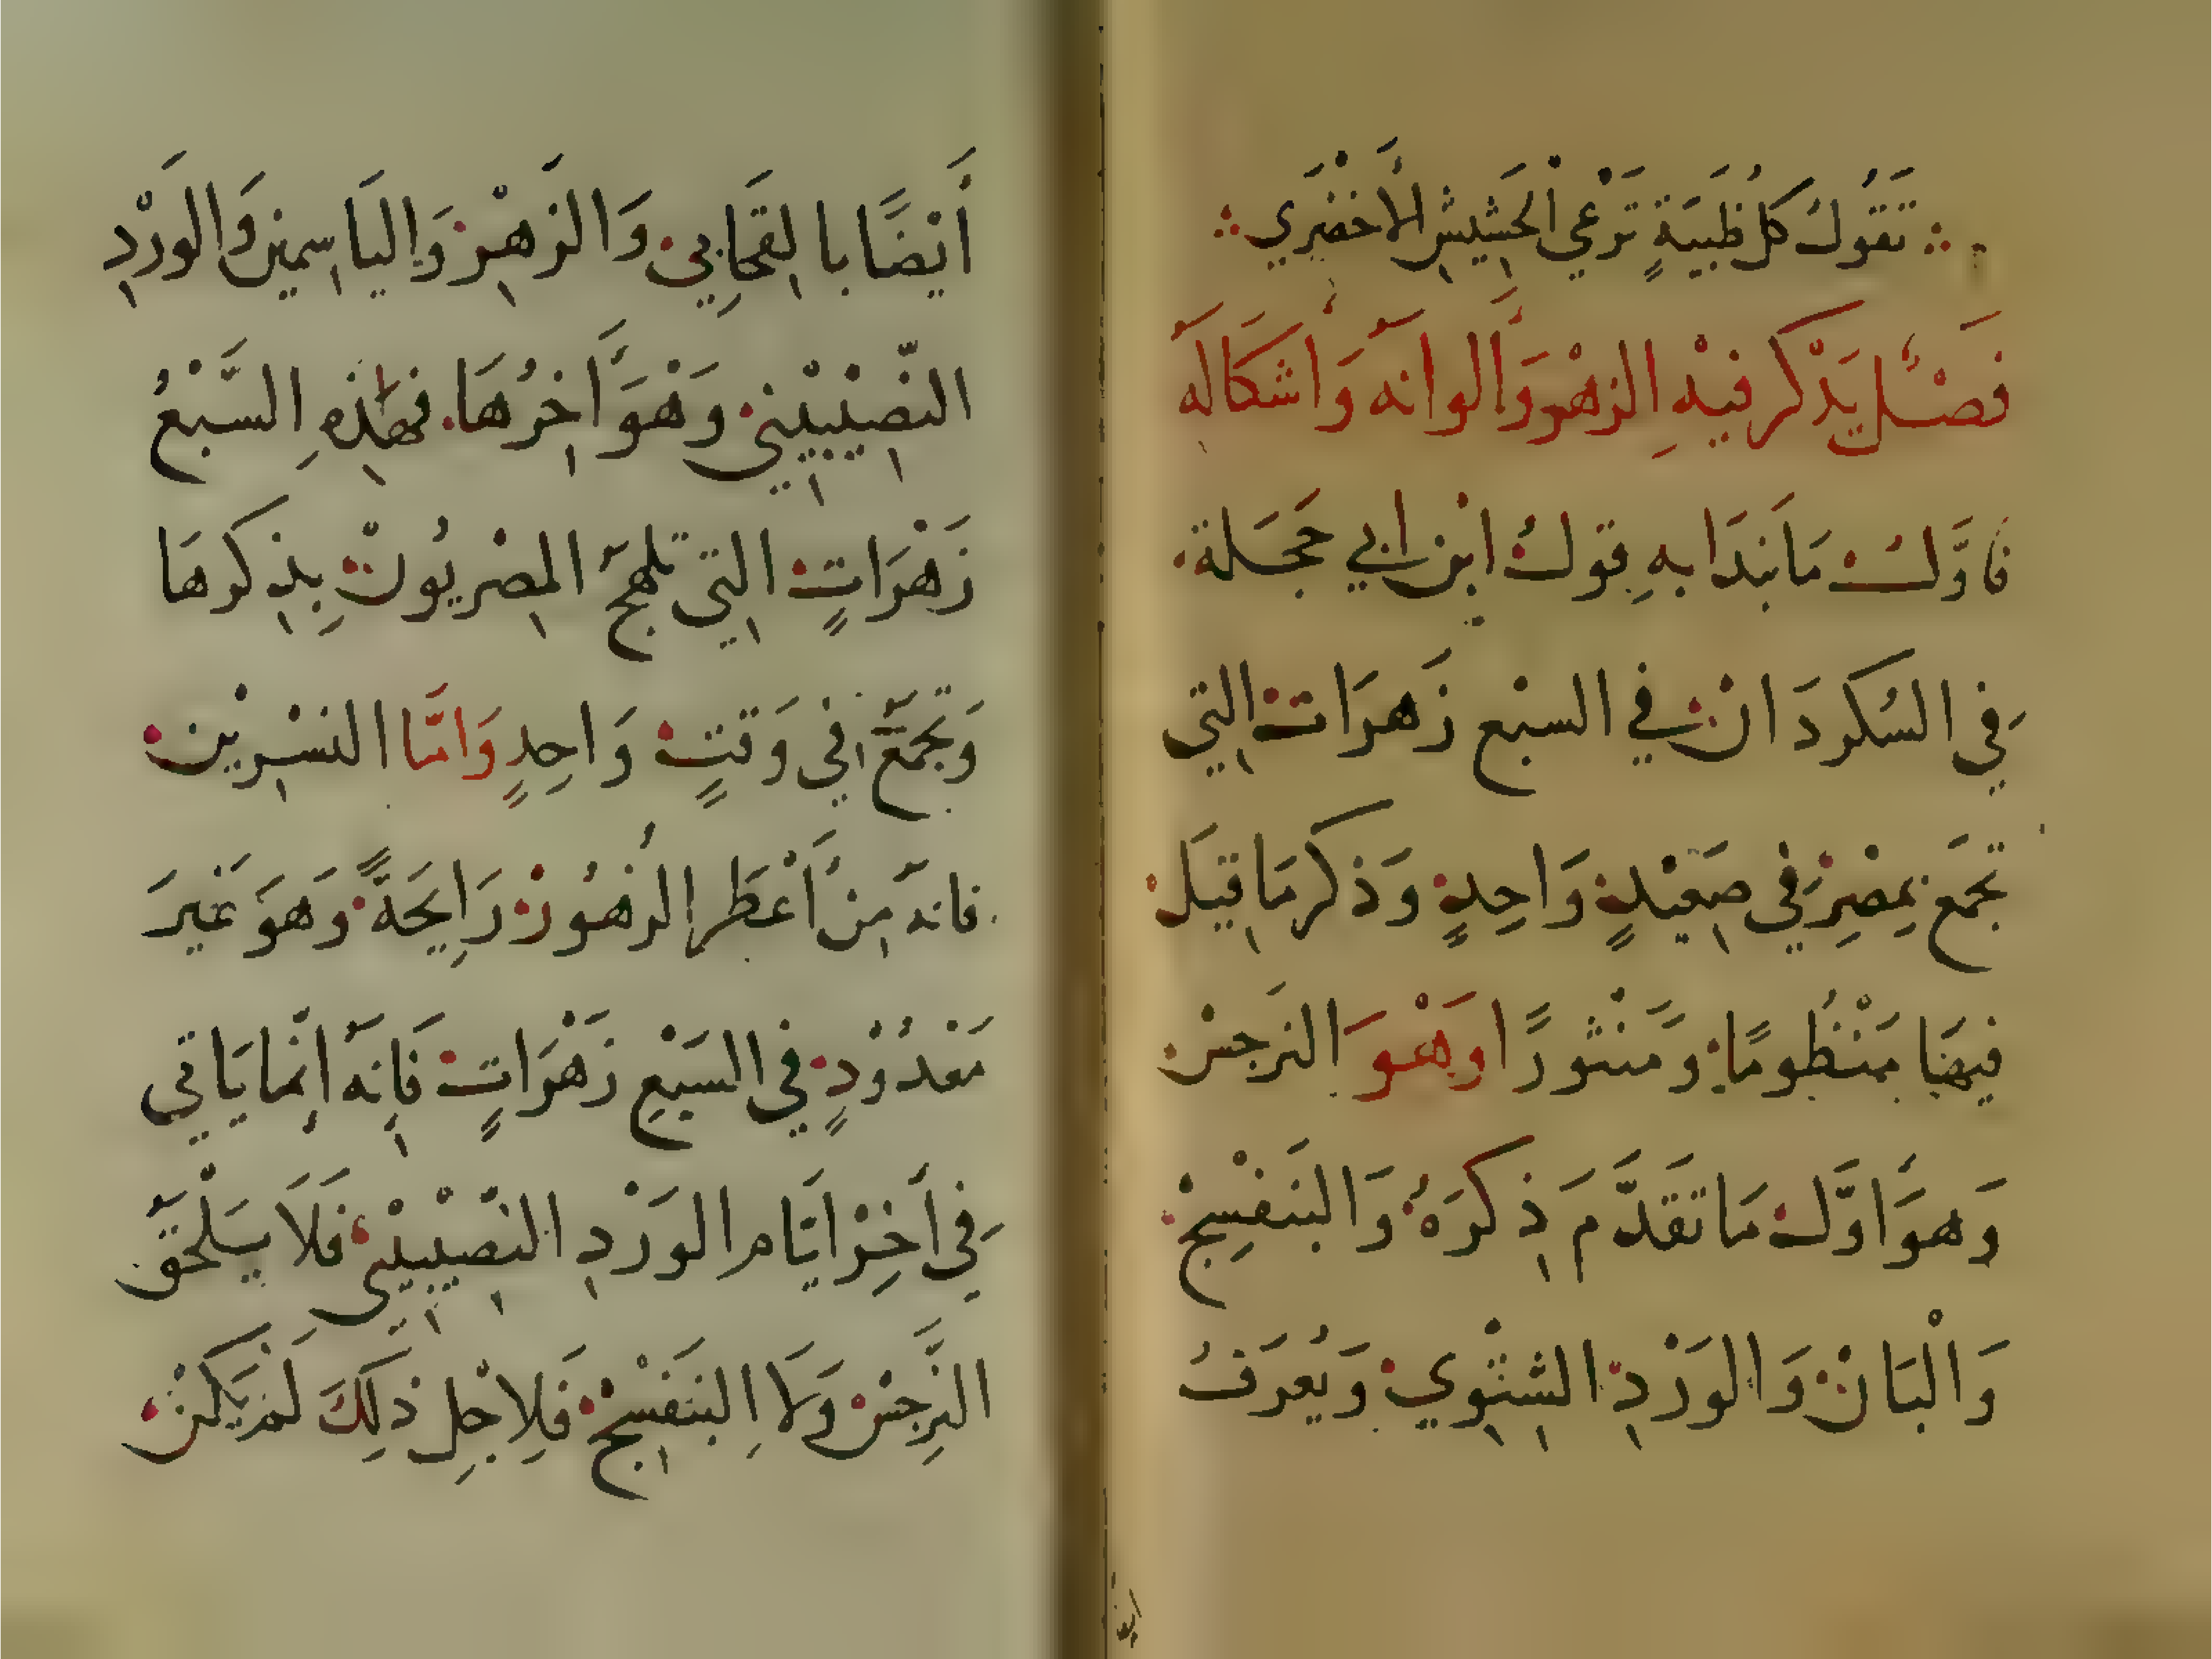 تَقُولُ كل ظَبيَةٍ تَرْعي الحَشِيشِ الأَخضَرِي
فَصْلٌ يَذْكر فيْهِ الزهْر وَأَلوانهَ وَأَشكَالهَ
فَاوَّلُ مَا نَبدَا بهِ قولُ ابْن ابي حَجَلة
فِي السُكردَان في السبْع زَهرَات التي
تجمَع بمِصْرِ في صَعِيْدٍ وَاحِدٍ وَذكر مَا قيَل
فيهَا مَنْظُومًا وَمَنْثورًا وَهْوَ النَرجسْ
وَهوَ أَوَّل مَا تقَدَّمَ ذِكرَهُ وَالبنَفْسِجْ
وَالْبَانْ وَالورْدِ الشتْوِي وَيُعرَفُ
أيضا
أَيْضًا بالقحَابيْ وَالزَهْر وَاليَاسمِين وَالورْدِ
النّصِيْبيْني وَهْوَ أَخِرُهَا فهَذِهِ السَّبْعُ
زَهْرَاتٍ التِي تلهجَ المِصْريُونْ بِذِكرهَا
وَتجمَعَّ في وَقتٍ وَاحِدٍ وَامَّا النسْرِيْن
فانهَ مِنْ أَعْطَر الزُهُورْ رَايِحَةً وَهوَ غَيرَ
مَعْدُوْدٍ في السَبْعِ زَهْرَاتٍ فَانِهَ إنما يَاتي
فِي أَخِرْ ايَّام الوَرْدِ النصِيْبيْني فَلاَ يَلْحَقَ
النَّرِجسْ وَلَا البنَفْسِجْ فَلِاجْلِ ذَلِكَ لَمْ يَكنْ